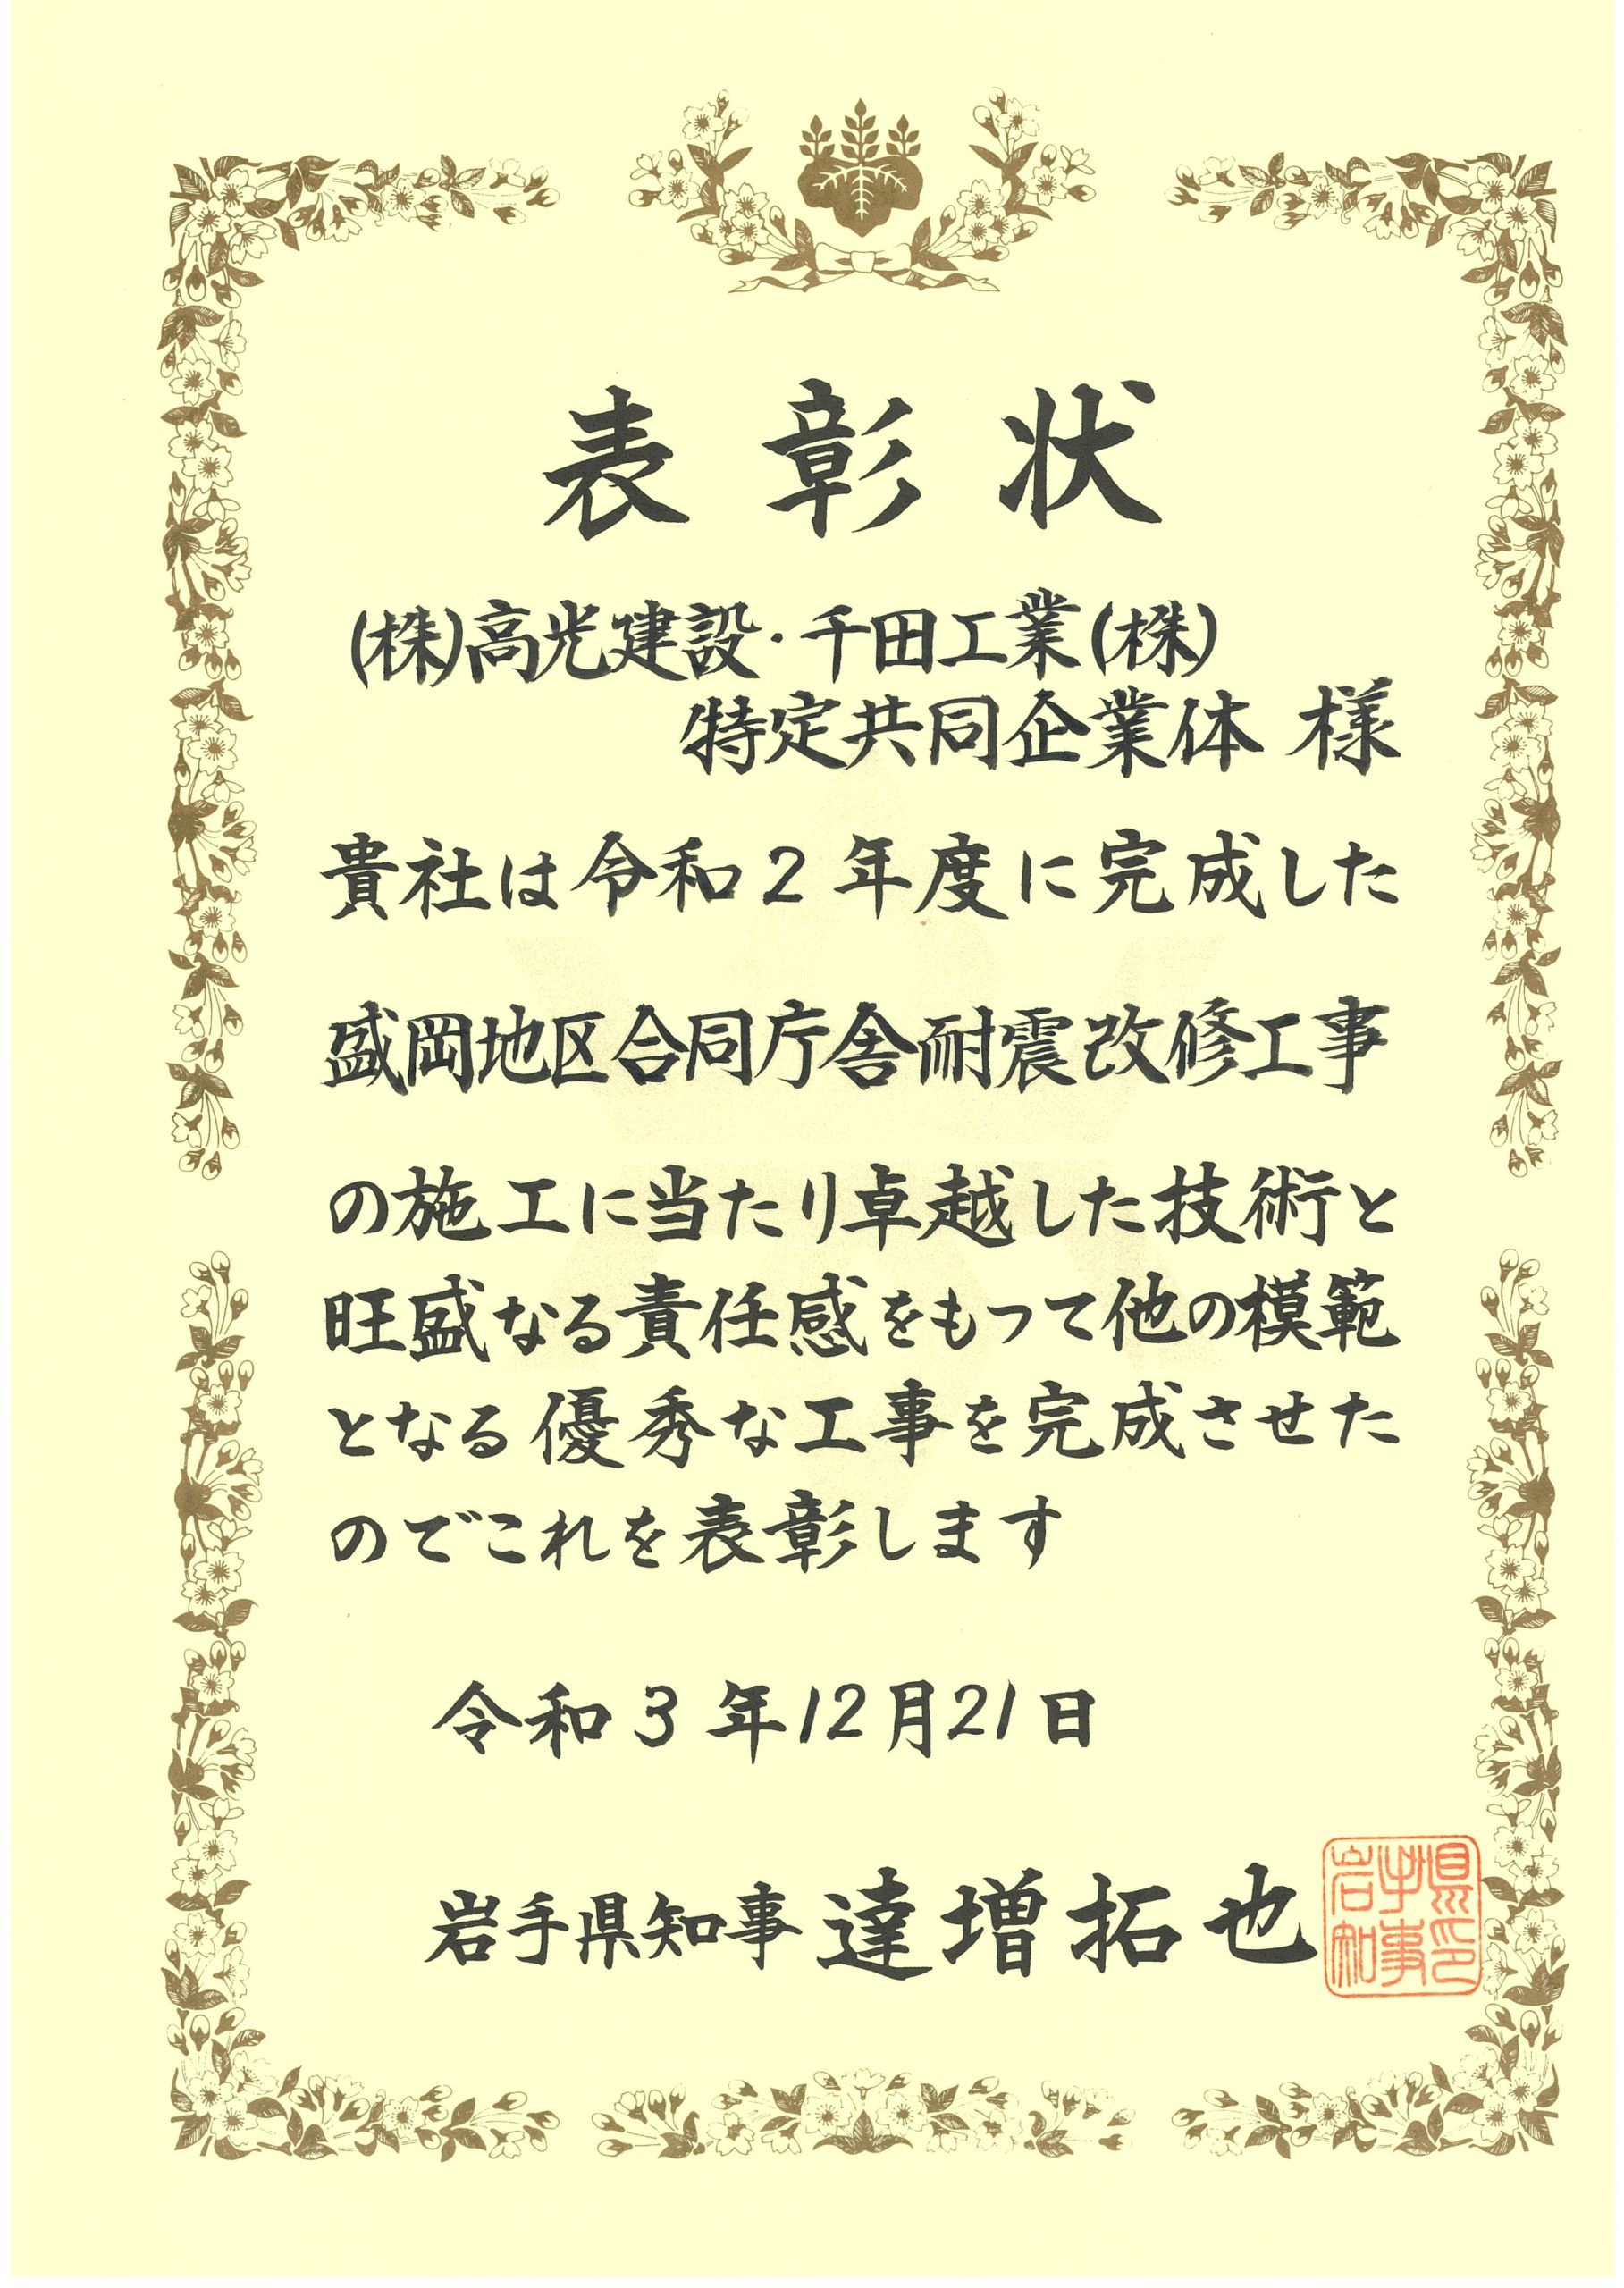 表彰状
(株)高光建設・千田工業(株)
特定共同企業体 様
貴社は令和2年度に完成した
盛岡地区合同庁舎耐震改修工事
の施工に当たり卓越した技術と
旺盛なる責任感をもって他の模範
となる優秀な工事を完成させた
のでこれを表彰します
令和3年12月21日
岩手県知事 達増拓也
岩手県
知事印